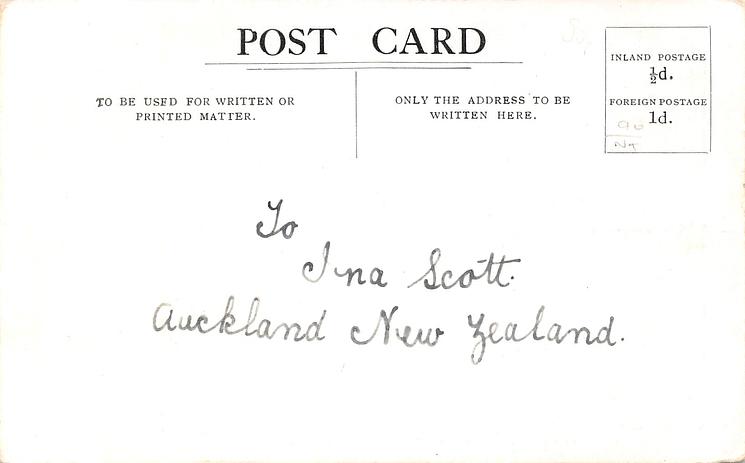 POST CARD
TO BE USED FOR WRITTEN OR
PRINTED MATTER.
ONLY THE ADDRESS TO BE
WRITTEN HERE.
INLAND POSTAGE
½d.
FOREIGN POSTAGE
1d.
90
NT
To
Ina Scott.
Auckland New Zealand.